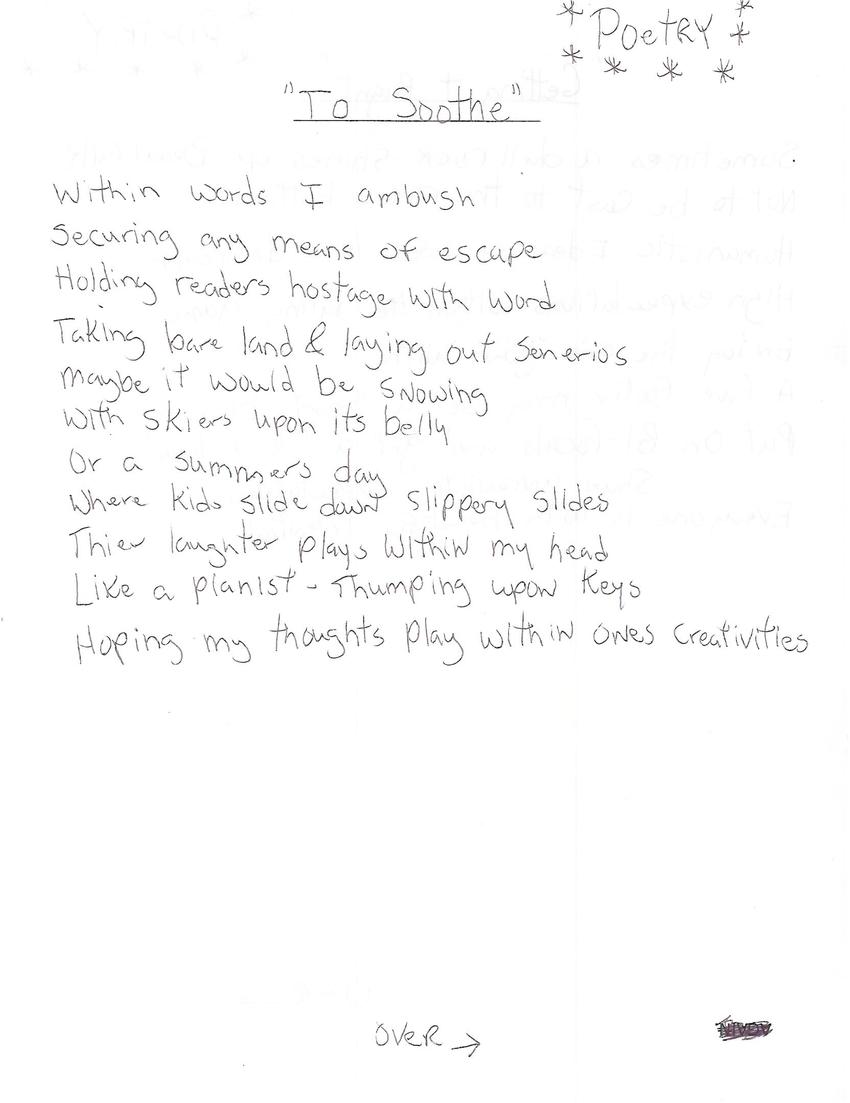 * Poetry *
* * * *
"To Soothe"
Within words I ambush
Securing any means of escape
Holding readers hostage with word
Taking bare land & laying out Senerios
maybe it would be snowing
with skiers upon its belly
Or a summers day
Where kids slide down slippery slides
Thier laughter plays within my head
Like a pianist - Thumping upon keys
Hoping my thoughts play within ones creativities
OVER →